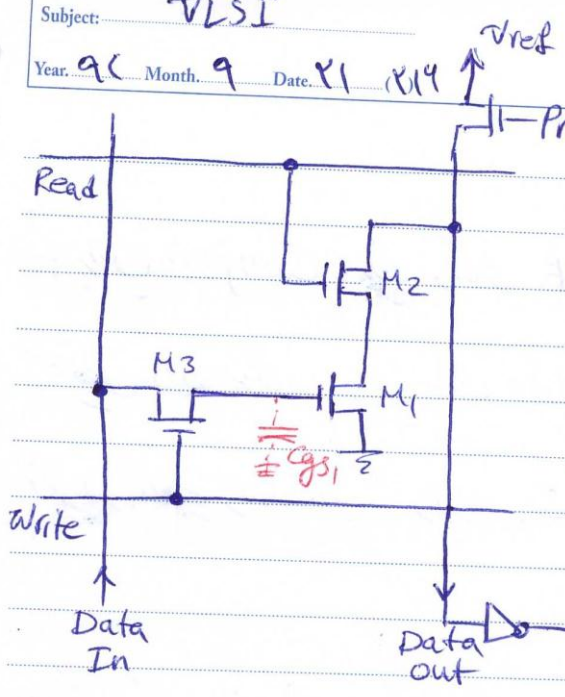 Subject: VLSI
Year. ۹۲ Month. ۹ Date. ۲۱
Vref
Pr
Read
M2
M3
M1
Cgs1
Write
Data
In
Data
out